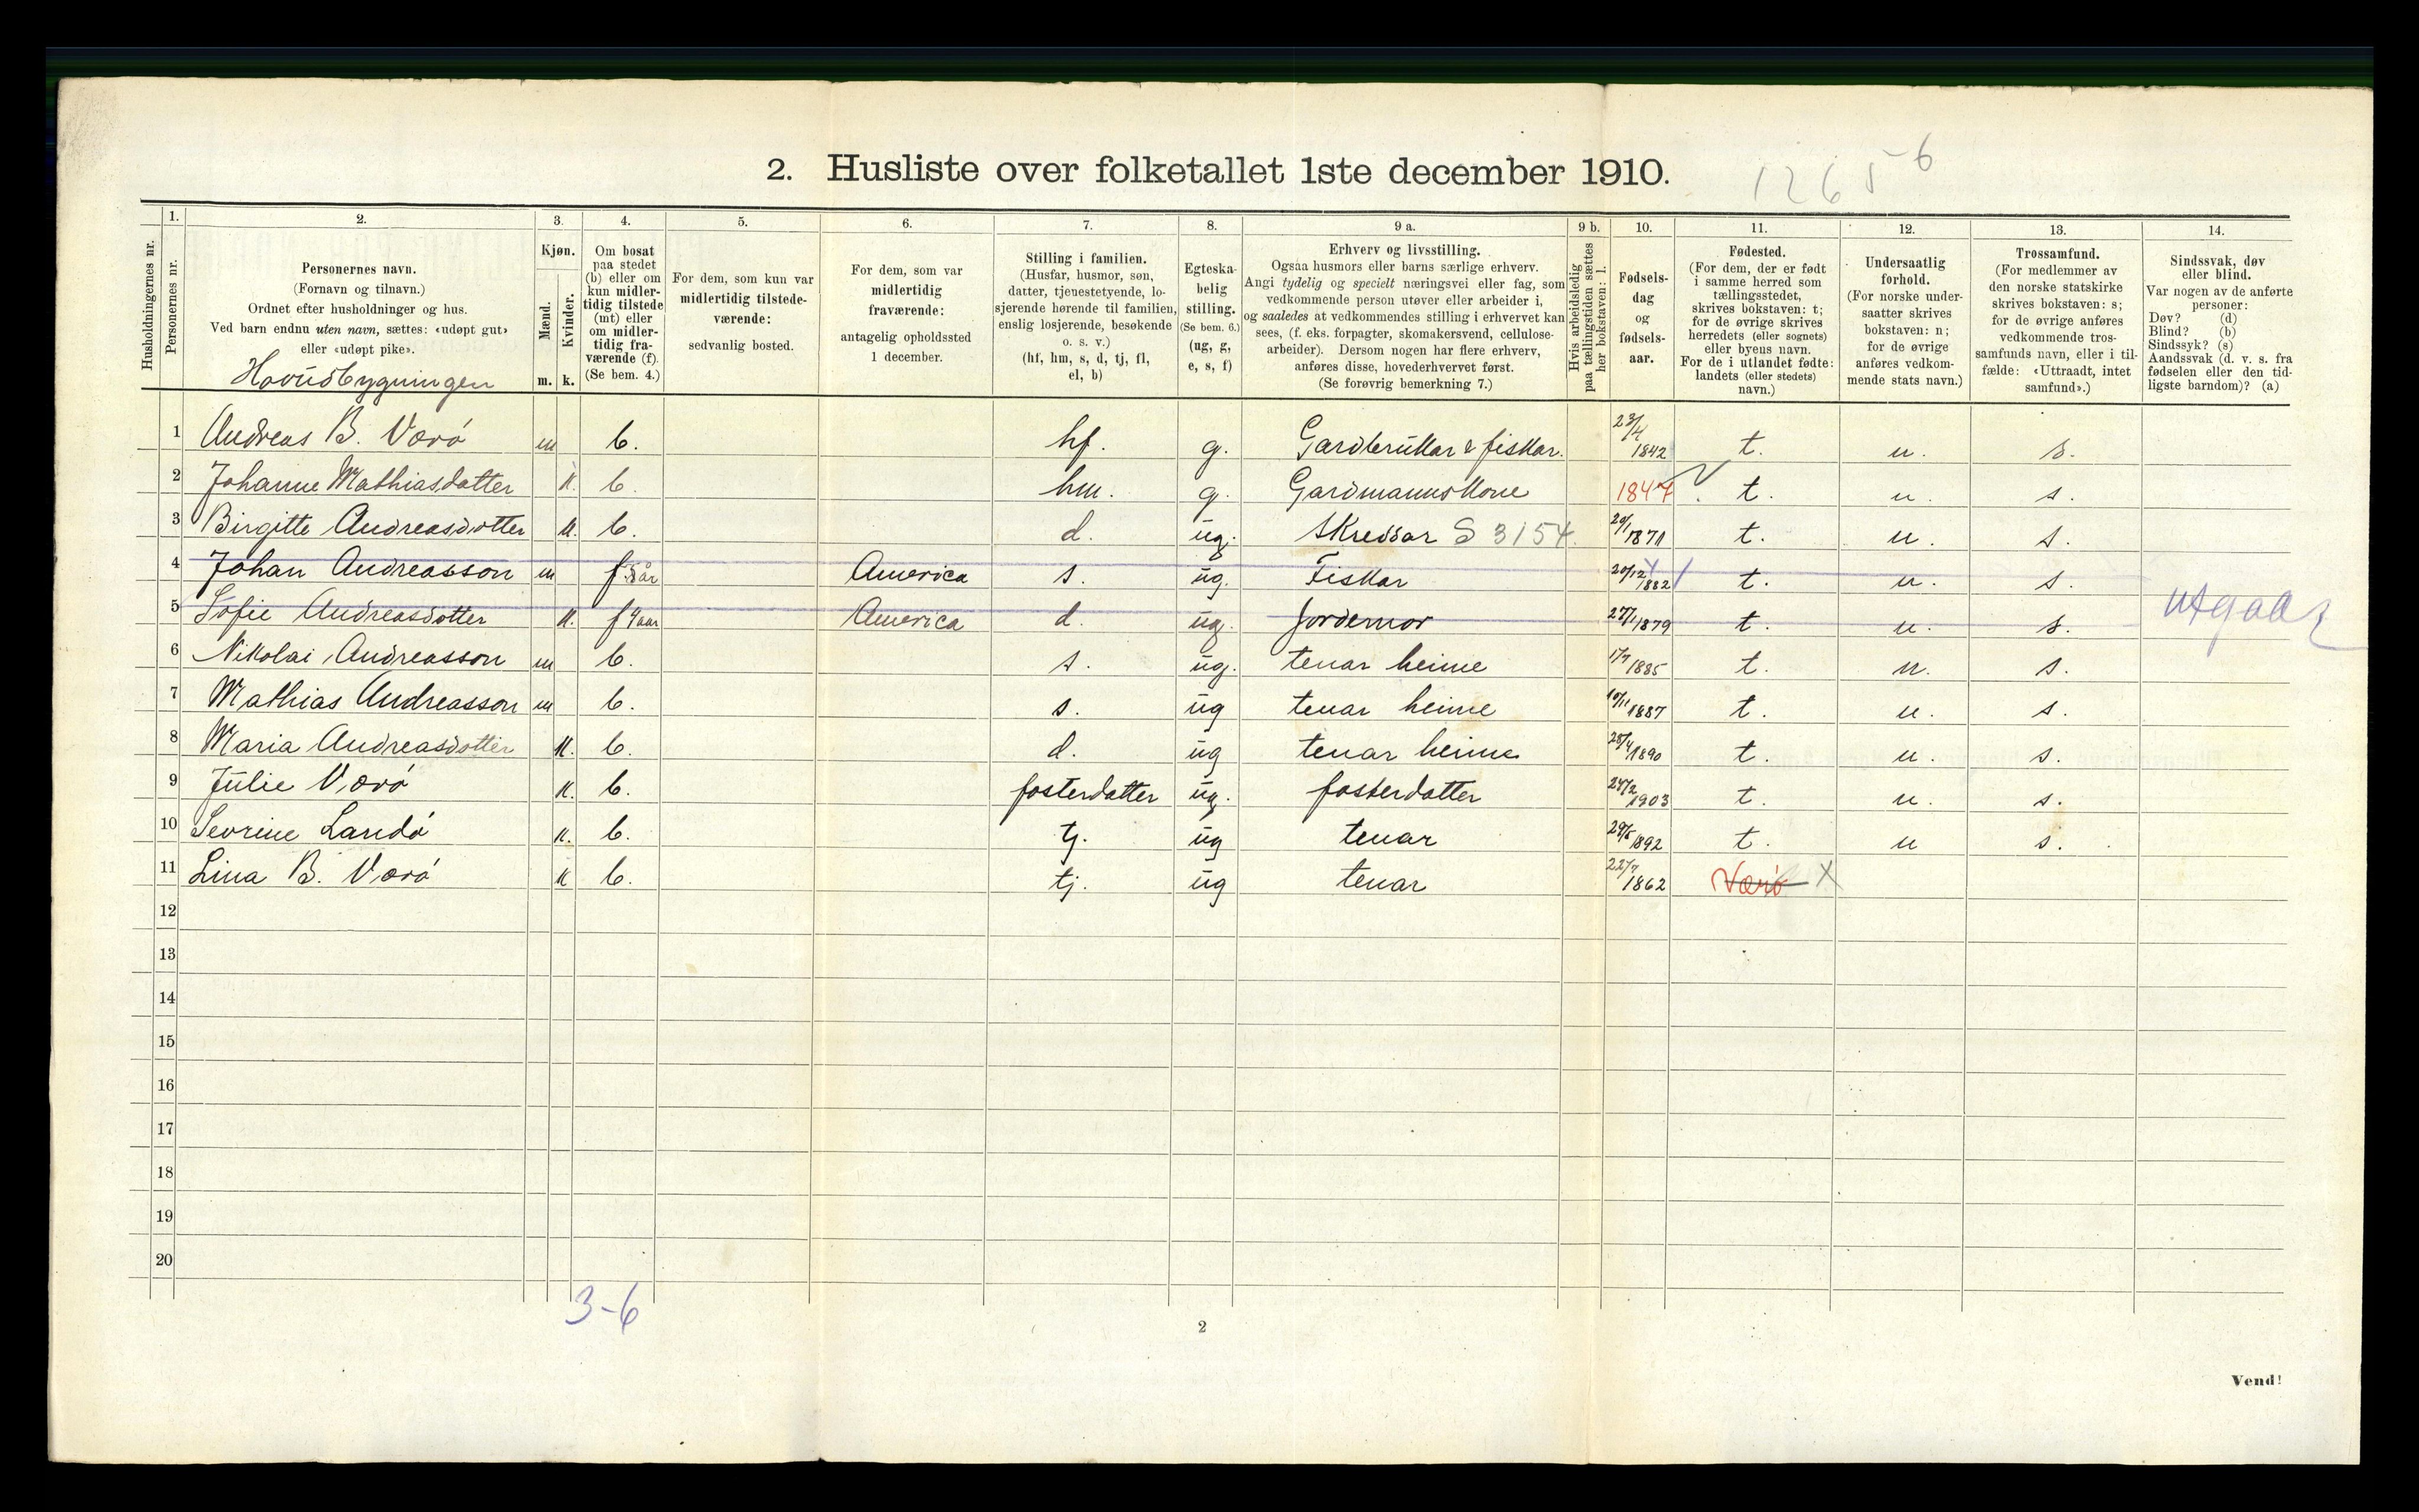 2. Husliste over folketallet 1ste december 1910.
12656
1. 2. 3. 4. 5. 6. 7. 8. 9 a. 9 b. 10. 11. 12. 13. 14.
Husholdningernes nr.
Personernes nr.
Personernes navn.
(Fornavn og tilnavn.)
Ordnet efter husholdninger og hus.
Ved barn endnu uten navn, sættes: «udøpt gut»
eller «udøpt pike».
Hovudbygningen
Kjøn.
Mænd.
Kvinder.
m. k.
Om bosat
paa stedet
(b) eller om
kun midler-
tidig tilstede
(mt) eller
om midler-
tidig fra-
værende (f).
(Se bem. 4.)
For dem, som kun var
midlertidig tilstede-
værende:
sedvanlig bosted.
For dem, som var
midlertidig
fraværende:
antagelig opholdssted
1 december.
Stilling i familien.
(Husfar, husmor, søn,
datter, tjenestetyende, lo-
sjerende hørende til familien,
enslig losjerende, besøkende
o. s. v.)
(hf, hm, s, d, tj, fl,
el, b)
Egteska-
belig
stilling.
(Se bem. 6.)
(ug, g,
e, s, f)
Erhverv og livsstilling.
Ogsaa husmors eller barns særlige erhverv.
Angi tydelig og specielt næringsvei eller fag, som
vedkommende person utøver eller arbeider i,
og saaledes at vedkommendes stilling i erhvervet kan
sees, (f. eks. forpagter, skomakersvend, cellulose-
arbeider). Dersom nogen har flere erhverv,
anføres disse, hovederhvervet først.
(Se forøvrig bemerkning 7.)
Hvis arbeidsledig
paa tællingstiden sættes
her bokstaven: l.
Fødsels-
dag
og
fødsels-
aar.
Fødested.
(For dem, der er født
i samme herred som
tællingsstedet,
skrives bokstaven: t;
for de øvrige skrives
herredets (eller sognets)
eller byens navn.
For de i utlandet fødte:
landets (eller stedets)
navn.)
Undersaatlig
forhold.
(For norske under-
saatter skrives
bokstaven: n;
for de øvrige
anføres vedkom-
mende stats navn.)
Trossamfund.
(For medlemmer av
den norske statskirke
skrives bokstaven: s;
for de øvrige anføres
vedkommende tros-
samfunds navn, eller i til-
fælde: «Uttraadt, intet
samfund».)
Sindssvak, døv
eller blind.
Var nogen av de anførte
personer:
Døv? (d)
Blind? (b)
Sindssyk? (s)
Aandssvak (d. v. s. fra
fødselen eller den tid-
ligste barndom)? (a)
1 Andreas B. Værö m b. hf. g. Gardbrukar & fiskar. 23/4 1842 t. n. s.
2 Johanne Mathiasdatter k. b. hm. g. Gardmannskone 1847 t. n. s.
3 Birgitte Andreasdotter k. b. d. ug. Skreddar S 3154 20/1 1871 t. n. s.
4 Johan Andreasson m f. 8 år America s. ug. Fiskar 20/12 1882 t. n. s.
5 Sofie Andreasdotter k. f 4 aar America d. ug. Jordemor 27/1 1879 t. n. s. utgaar
6 Nikolai Andreasson m b. s. ug. tenar heime 17/7 1885 t. n. s.
7 Mathias Andreasson m b. s. ug tenar heime 10/11 1887 t. n. s.
8 Maria Andreasdotter k. b. d. ug tenar heime 25/4 1890 t. n. s.
9 Julie Værö k. b. fosterdatter ug. fosterdatter 24/2 1903 t. n. s.
10 Sevrine Landö k. b. tj. ug tenar 29/5 1892 t. n s.
11 Lina B. Værö k b. tj. ug tenar 22/7 1862 Værö X
12
13
14
15
16
17
18
19
20
3-6
2
Vend!